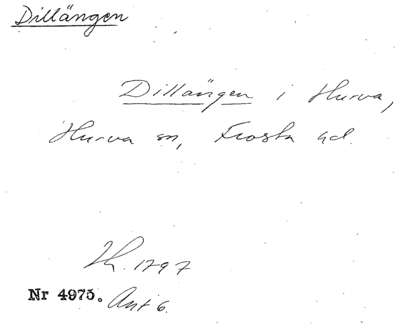 Dillängen
Dillängen i Hurva,
Hurva sn, Frosta hd.
Th. 1797
Nr 4975. Ant 6.